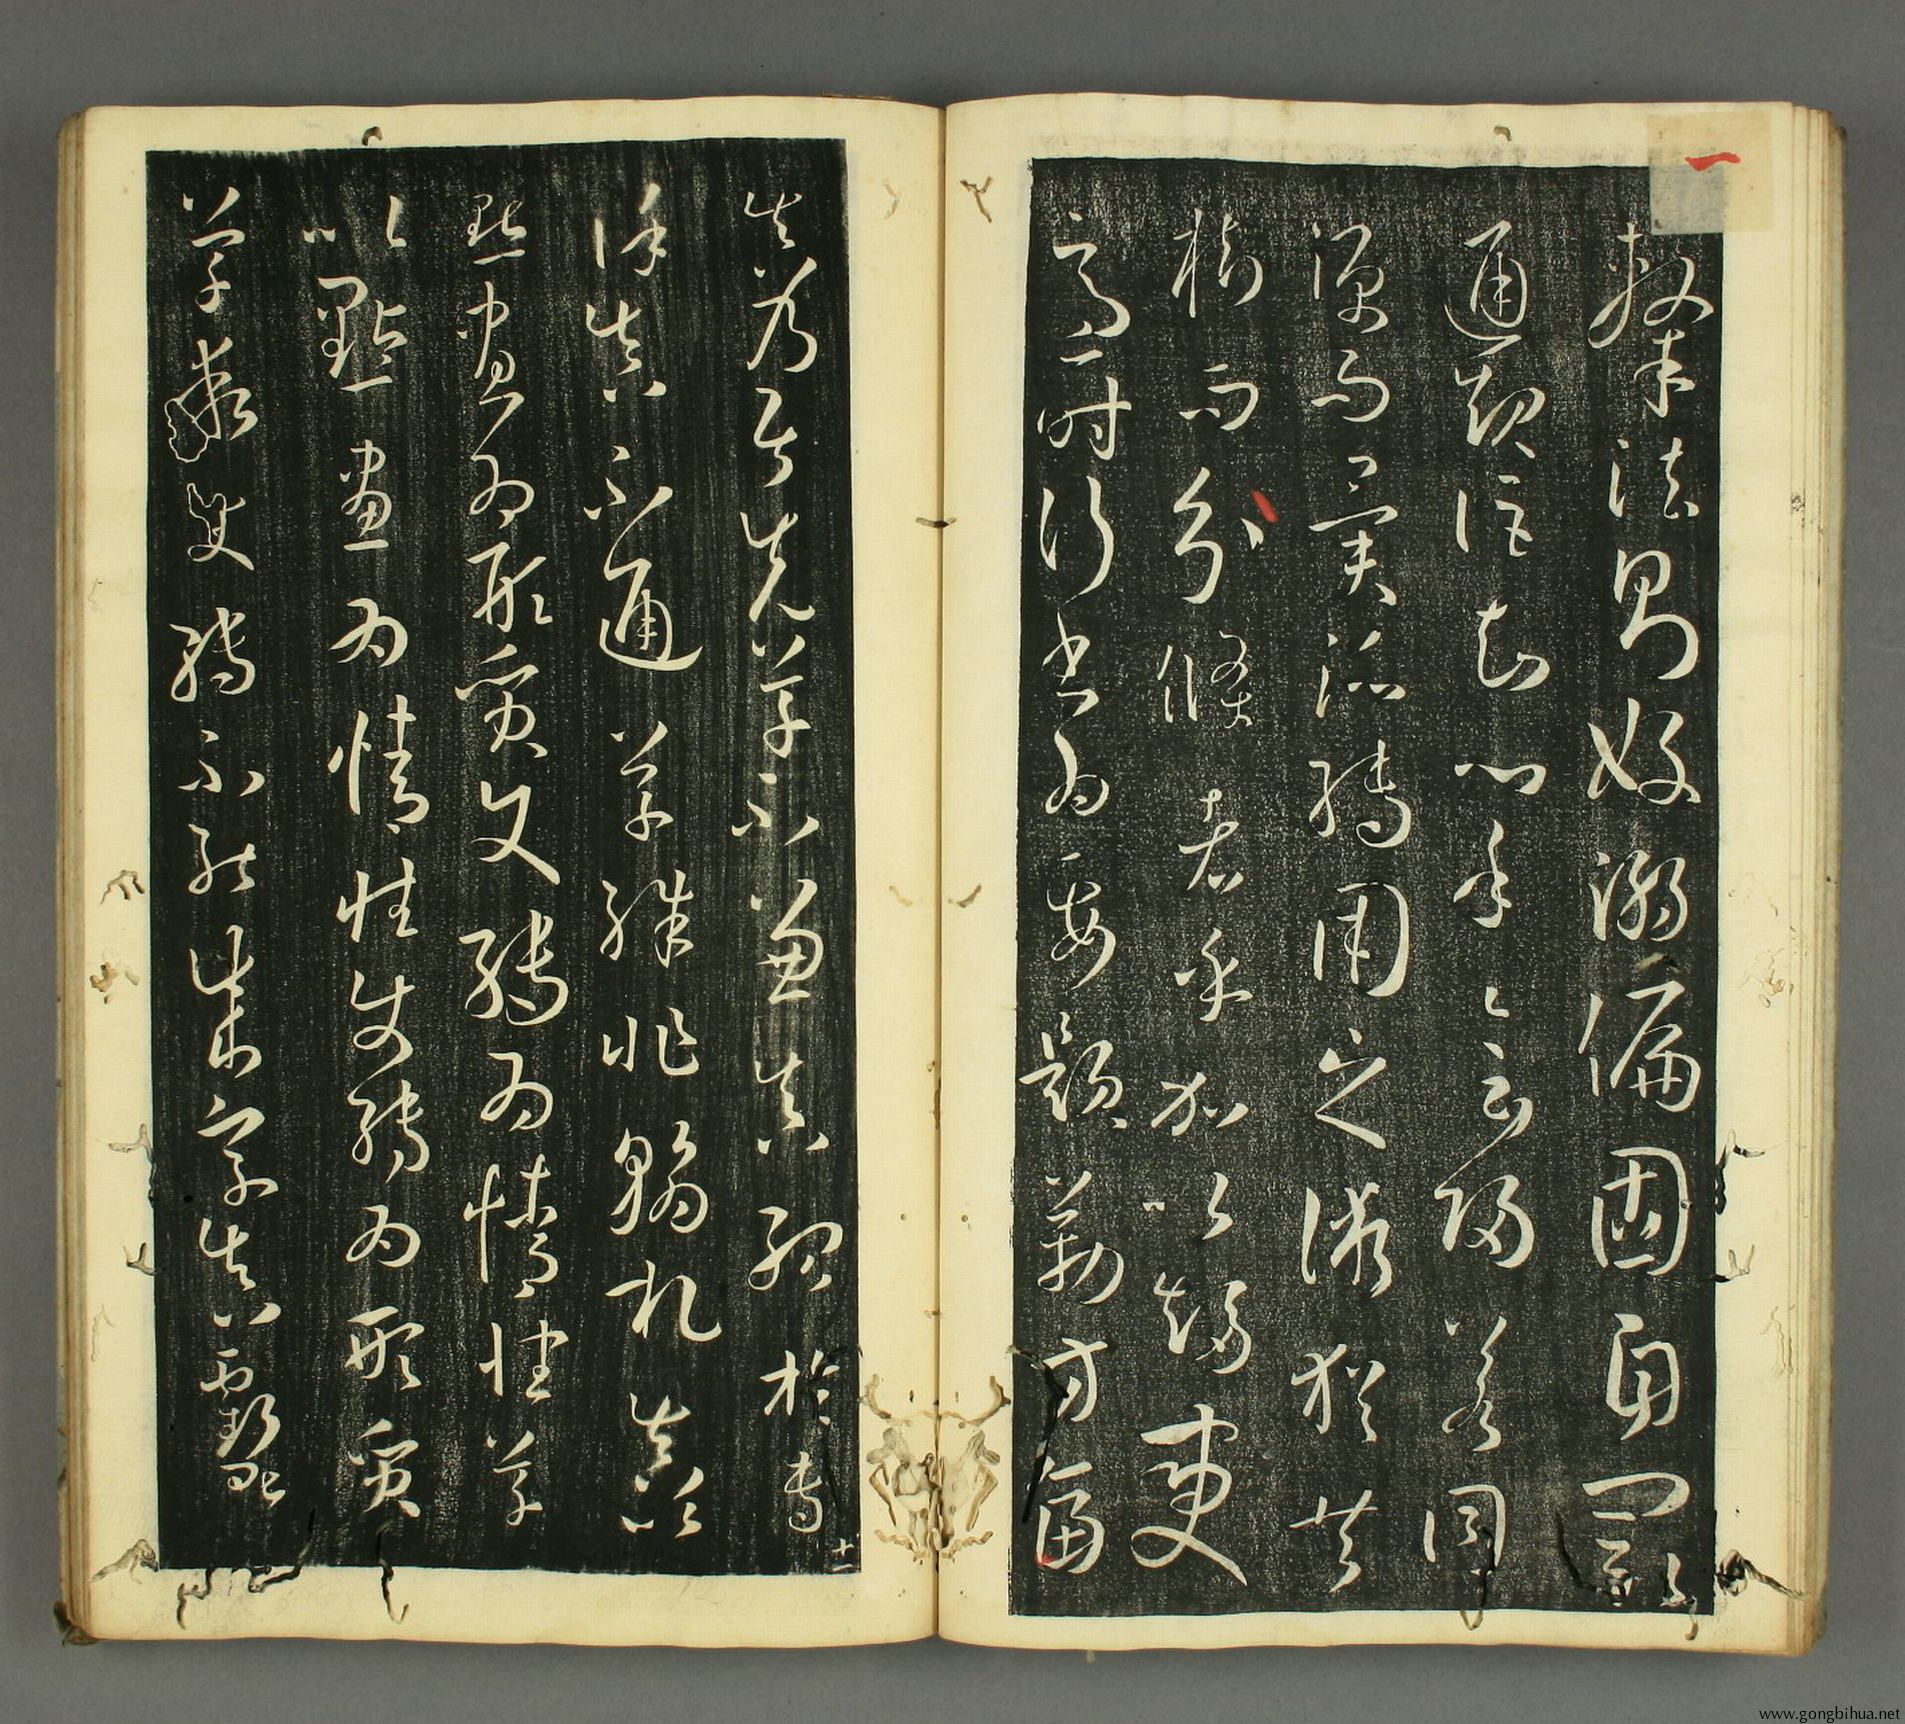 隸法則好溺偏固自閡
通規詎知心手會歸若同
源而異派轉用之術猶共
樹而分條者乎加以趨變
適時行書為要題勒方畐
真乃居先草不兼真殆於專
十一
謹真不通草殊非翰札真以
點畫為形質使轉為情性草
以點畫為情性使轉為形質
草乖使轉不能成字真虧點
www.gongbihua.net